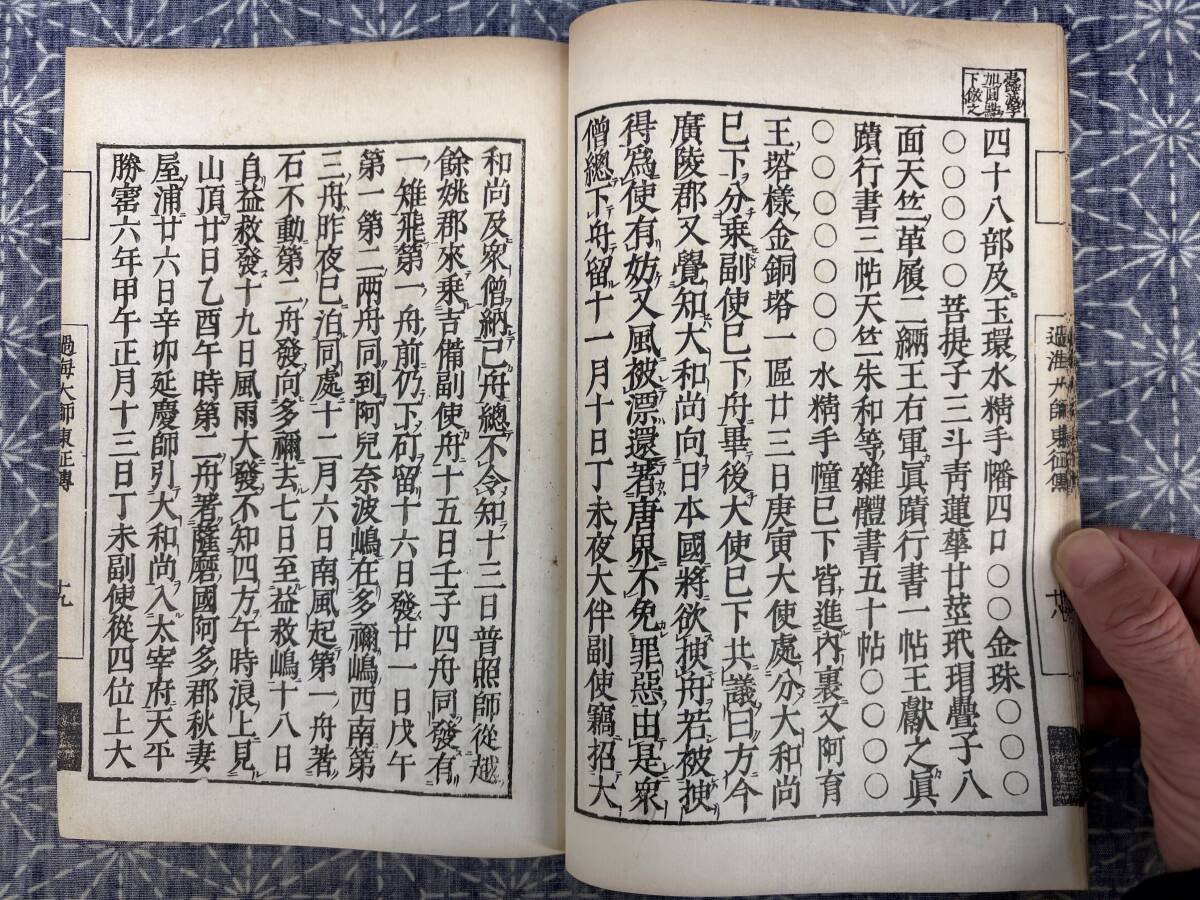 四十八部及玉環水精手幡四口〇〇金珠〇〇〇
〇〇〇〇〇菩提子三斗靑蓮華廿莖玳瑁疊子八
面天竺革履二緉王右軍眞蹟行書一帖王獻之眞
蹟行書三帖天竺朱和等雜體書五十帖〇〇〇〇
〇〇〇〇〇〇水精手幢巳下皆進內裏又阿育
王塔樣金銅塔一區廿三日庚寅大使處分大和尚
巳下分乗副使巳下舟畢後大使巳下共議曰方今
廣陵郡又覺知大和尚向日本國將欲搜舟若被搜
得爲使有妨又風被漂還著唐界不免罪惡由是衆
僧總下舟留十一月十日丁未夜大伴副使竊招大
和尚及衆僧納己舟總不令知十三日普照師從越
餘姚郡來乗吉備副使舟十五日壬子四舟同發有
一雉飛第一舟前仍下矴留十六日發廿一日戊午
第一第二兩舟同到阿兒奈波嶋在多禰嶋西南第
三舟昨夜巳泊同處十二月六日南風起第一舟著
石不動第二舟發向多禰去七日至益救嶋十八日
自益救發十九日風雨大發不知四方午時浪上見
山頂廿日乙酉午時第二舟著薩麿國阿多郡秋妻
屋浦廿六日辛卯延慶師引大和尚入太宰府天平
勝寳六年甲午正月十三日丁未副使從四位上大
過海大師東征傳
十八
過海大師東征傳
十九